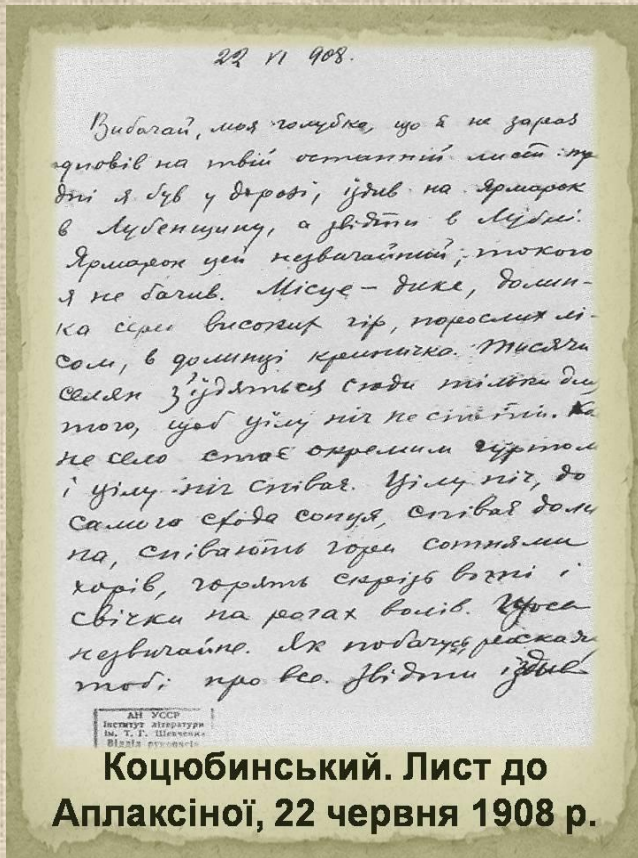 22 VI 908.
Вибачай, моя голубко, що я не зараз
одповів на твій останній лист: ци
дні я був у дорозі, їздив на ярмарок
в Лубенщину, а звідти в Лубні.
Ярмарок цей незвичайний, такого
я не бачив. Місце – дике, долин-
ка серед високих гір, порослих лі-
сом, в долинці криничка. Тисячи
селян з'їздяться сюди тільки для
того, щоб цілу ніч не спати. Ко
не село стає окремим гуртом
і цілу ніч співає. Цілу ніч, до
самого схода сонця, співає доли
на, співають гори сотнями
хорів, горять скрізь вогні і
свічки на рогах волів. Щось
незвичайне. Як побачусь, роскажу
тобі про все. Звідти їздив
АН УССР
Інститут літератури
ім. Т. Г. Шевченка
Відділ рукописів
Коцюбинський. Лист до
Аплаксіної, 22 червня 1908 р.